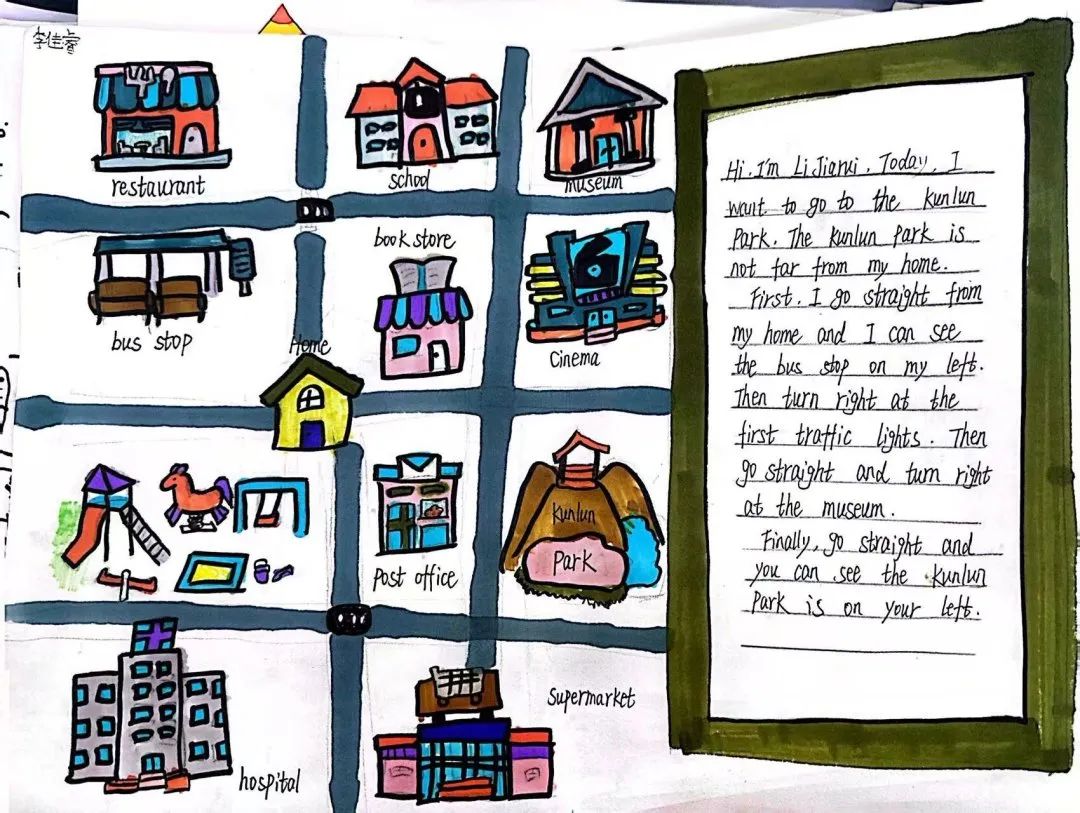 李佳睿
restaurant
school
museum
bus stop
book store
Cinema
Home
Kunlun
Park
post office
hospital
Supermarket
Hi. I'm Li Jiarui. Today, I
want to go to the Kunlun
Park. The Kunlun Park is
not far from my home.
First. I go straight from
my home and I can see
the bus stop on my left.
Then turn right at the
first traffic lights. Then
go straight and turn right
at the museum.
Finally, go straight and
you can see the Kunlun
Park is on your left.